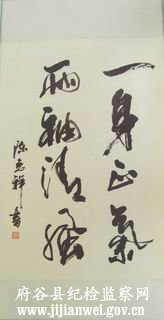 一身正氣
兩袖清風
陈志祥书
府谷县纪检监察网
www.jijianwei.gov.cn